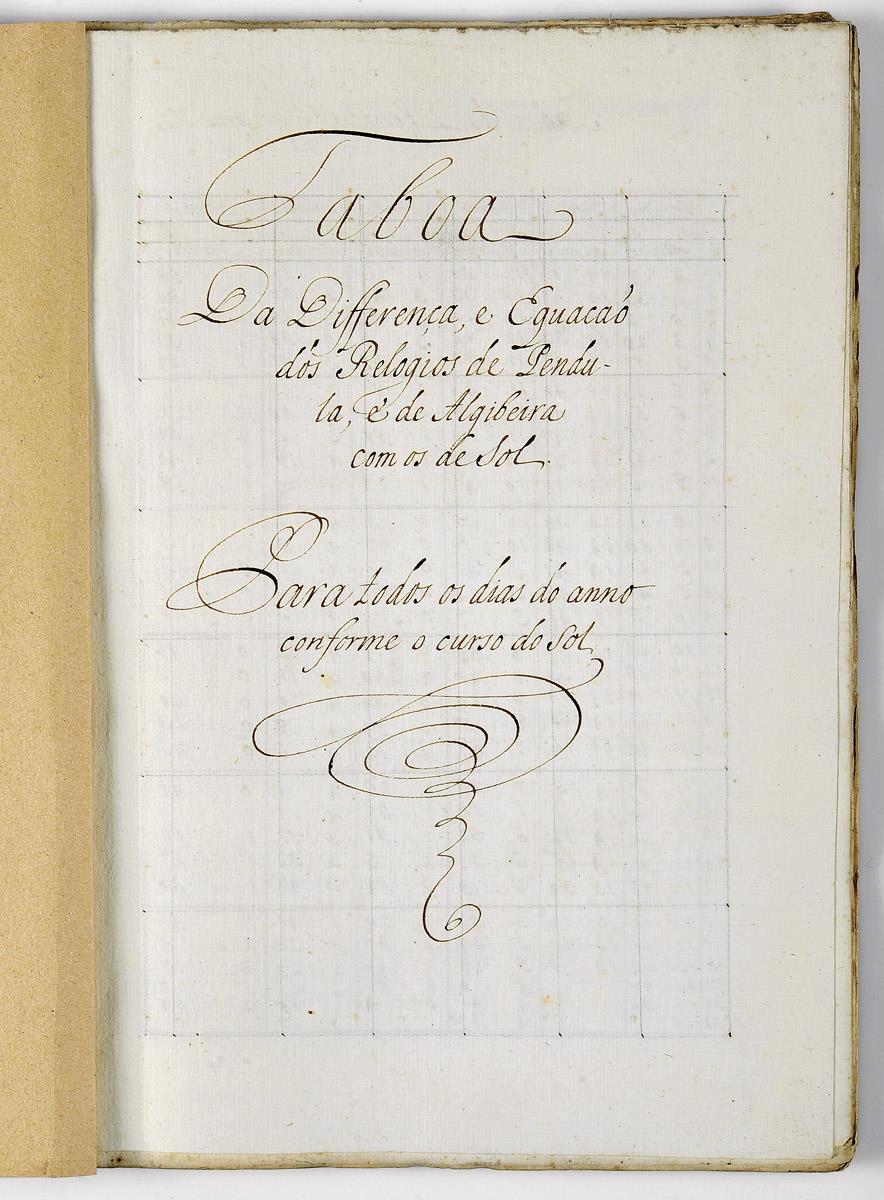 Taboa
Da Differença, e Equacaõ
dós Relogios de Pendu-
la, e de Algibeira
com os de Sol.
Para todos os dias do anno
conforme o curso do Sol